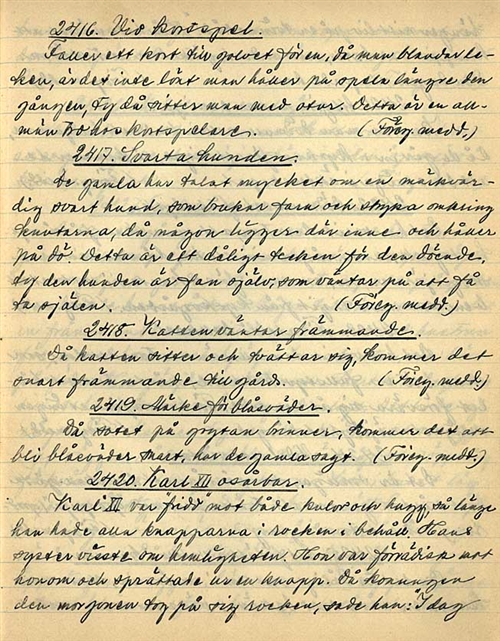 2416. Vid kortspel.
Faller ett kort till golvet för en, då man blandar le-
ken, är det inte lönt man håller på spela längre den
gången, ty då sitter man med otur. Detta är en all-
män tro hos kortspelare. (Föreg. medd.)
2417. Svarta hunden.
De gamla har talat mycket om en märkvär-
dig svart hund, som brukar fara och stryka omkring
knutarna, då någon ligger där inne och håller
på dö. Detta är ett dåligt tecken för den döende,
ty den hunden är fan själv, som väntar på att få
ta själen. (Föreg. medd.)
2418. Katten väntar främmande.
Då katten sitter och tvättar sig, kommer det
snart främmande till gårds. (Föreg. medd.)
2419. Märke för blåsväder.
Då sotet på grytan brinner, kommer det att
bli blåsväder snart, har de gamla sagt. (Föreg. medd.)
2420. Karl XII osårbar.
Karl XII var "fridd" mot både kulor och hugg, så länge
han hade alla knapparna i rocken i behåll. Hans
syster visste om hemligheten. Hon var förrädisk mot
honom och sprättade ur en knapp. Då konungen
den morgonen tog på sig rocken, sade han: "I dag